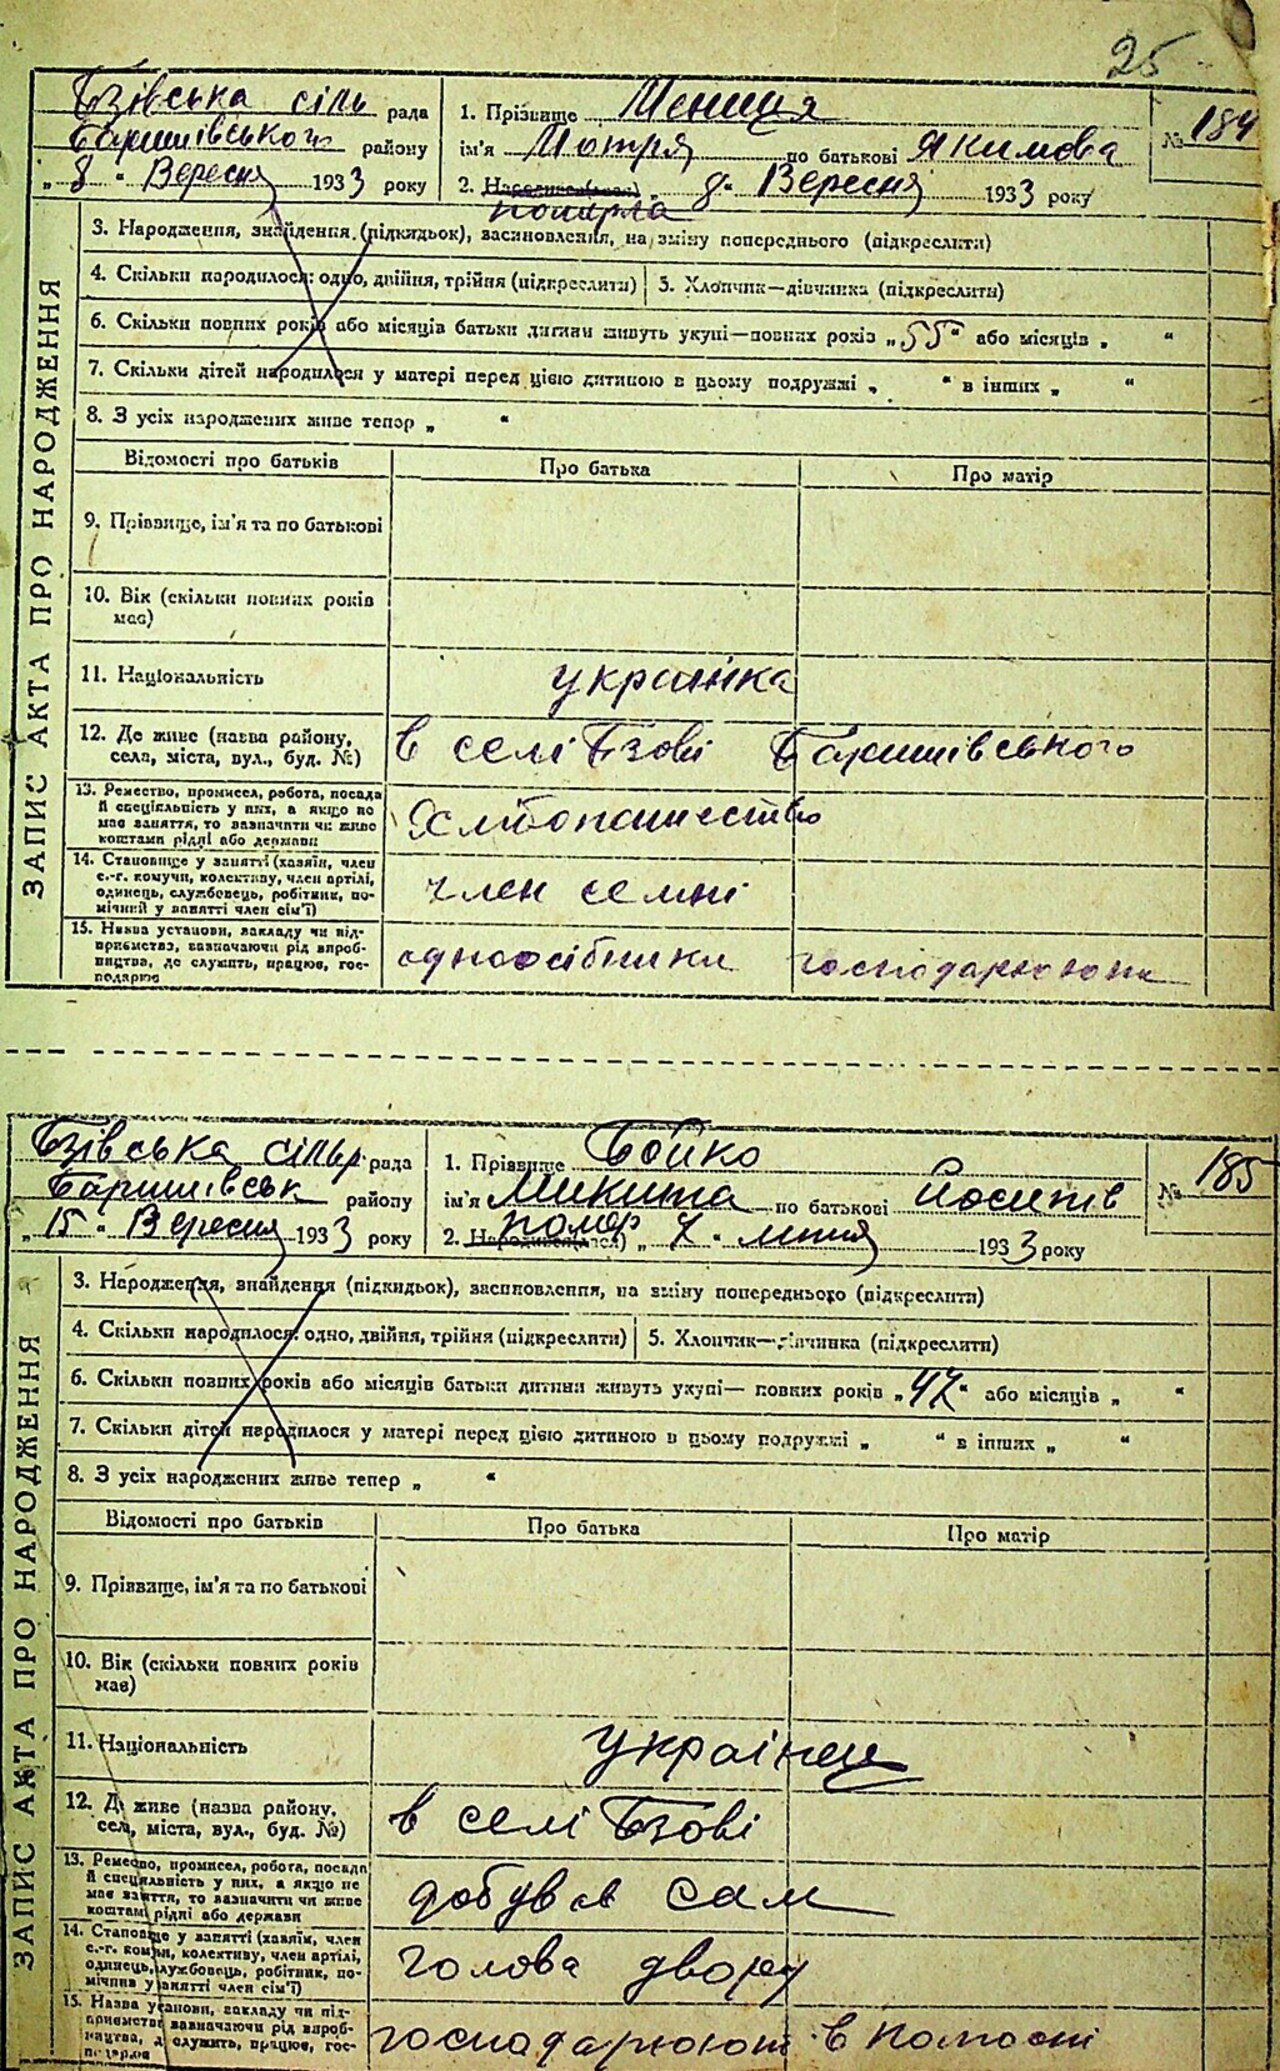 25
Бзівська сіль рада
Баришівського району
„ 8 " Вересня 1933 року
1. Прізвище Мениця
ім'я Мотря по батькові Якимова
2. Народився(лася) „ 8 " Вересня 1933 року
померла
№ 184
ЗАПИС АКТА ПРО НАРОДЖЕННЯ
3. Народження, знайдення (підкидьок), засиновлення, на зміну попереднього (підкреслити)
4. Скільки народилося: одно, двійня, трійня (підкреслити) 5. Хлопчик—дівчинка (підкреслити)
6. Скільки повних років або місяців батьки дитини живуть укупі—повних років „ 55 " або місяців „ "
7. Скільки дітей народилося у матері перед цією дитиною в цьому подружжі „ " в інших „ "
8. З усіх народжених живе тепер „ "
Відомості про батьків Про батька Про матір
9. Прізвище, ім'я та по батькові
10. Вік (скільки повних років
має)
11. Національність українка
12. Де живе (назва району,
села, міста, вул., буд. №)
в селі Бзові Баришівського
13. Ремество, промисел, робота, посада
й спеціяльність у них, а якщо не
має заняття, то зазначити чи живе
коштами рідні або держави
Хлібопашество
14. Становище у занятті (хазяїн, член
с.-г. комуни, колективу, член артілі,
одинець, службовець, робітник, по-
мічний у занятті член сім'ї)
член семні
15. Назва установи, закладу чи під-
приємства, зазначаючи рід вироб-
ництва, де служить, працює, гос-
подарює
одноосібники господарюють
Бзівська сільр. рада
Баришівськ району
„ 15 " Вересня 1933 року
1. Прізвище Бойко
ім'я Микита по батькові Йосипів
помер
2. Народився(лася) „ 7 " липня 1933 року
№ 185
ЗАПИС АКТА ПРО НАРОДЖЕННЯ
3. Народження, знайдення (підкидьок), засиновлення, на зміну попереднього (підкреслити)
4. Скільки народилося: одно, двійня, трійня (підкреслити) 5. Хлопчик—дівчинка (підкреслити)
6. Скільки повних років або місяців батьки дитини живуть укупі— повних років „ 47 " або місяців „ "
7. Скільки дітей народилося у матері перед цією дитиною в цьому подружжі „ " в інших „ "
8. З усіх народжених живе тепер „ "
Відомості про батьків Про батька Про матір
9. Прізвище, ім'я та по батькові
10. Вік (скільки повних років
має)
11. Національність українец
12. Де живе (назва району,
села, міста, вул., буд. №)
в селі Бзові
13. Ремесло, промисел, робота, посада
й спеціяльність у них, а якщо не
має заняття, то зазначити чи живе
коштами рідні або держави
добував сам
14. Становище у занятті (хазяїн, член
с.-г. комуни, колективу, член артілі,
одинець, службовець, робітник, по-
мічник у занятті член сім'ї)
голова двору
15. Назва установи, закладу чи під-
приємства зазначаючи рід вироб-
ництва, де служить, працює, гос-
подарює
господарюют в